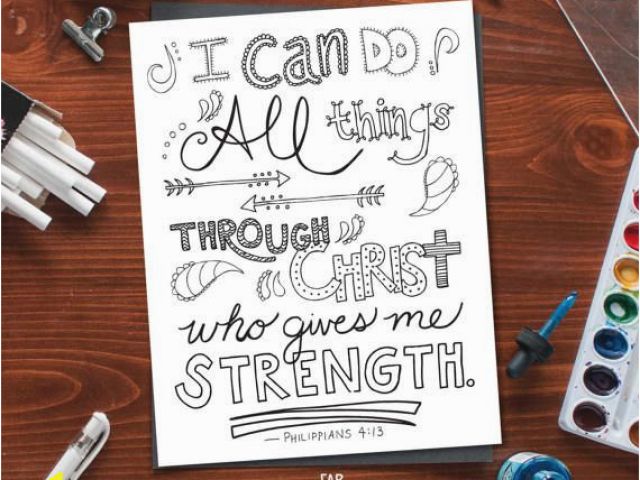 I Can Do
All things
THROUGH
CHRIST
who gives me
STRENGTH.
— PHILIPPIANS 4:13
FAB